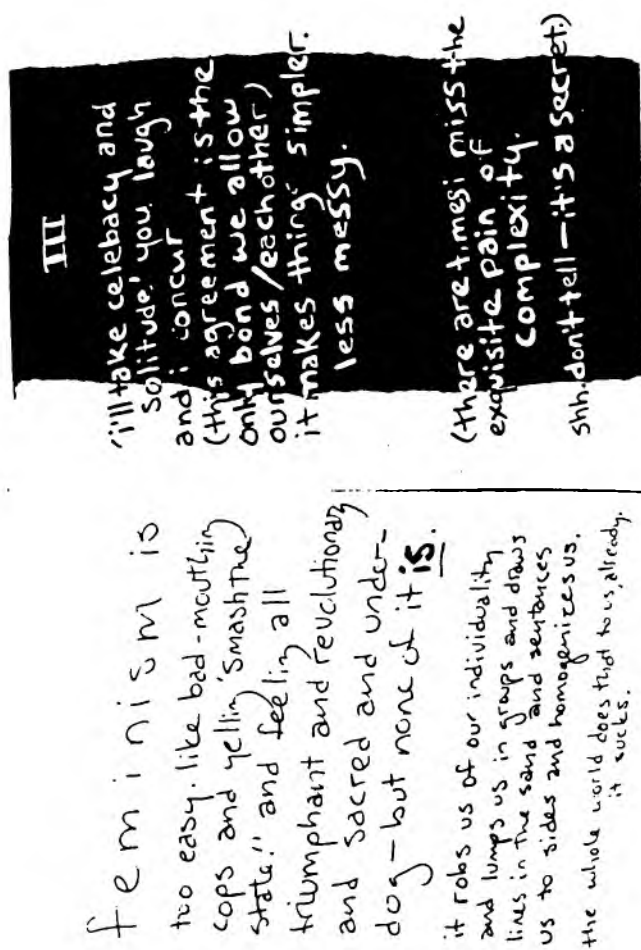 feminism is
too easy. like bad-mouthing
cops and yellin' "smash the
state!" and feeling all
triumphant and revolutionary
and sacred and under-
dog - but none of it is.
it robs us of our individuality
and lumps us in groups and draws
lines in the sand and sentances
us to sides and homogenizes us.
the whole world does that to us, already.
it sucks.
III
"i'll take celebacy and
solitude," you laugh
and i concur
(this agreement is the
only bond we allow
ourselves/eachother)
it makes things simpler.
less messy.
(there are times i miss the
exquisite pain of
complexity.
shh. don't tell - it's a secret.)